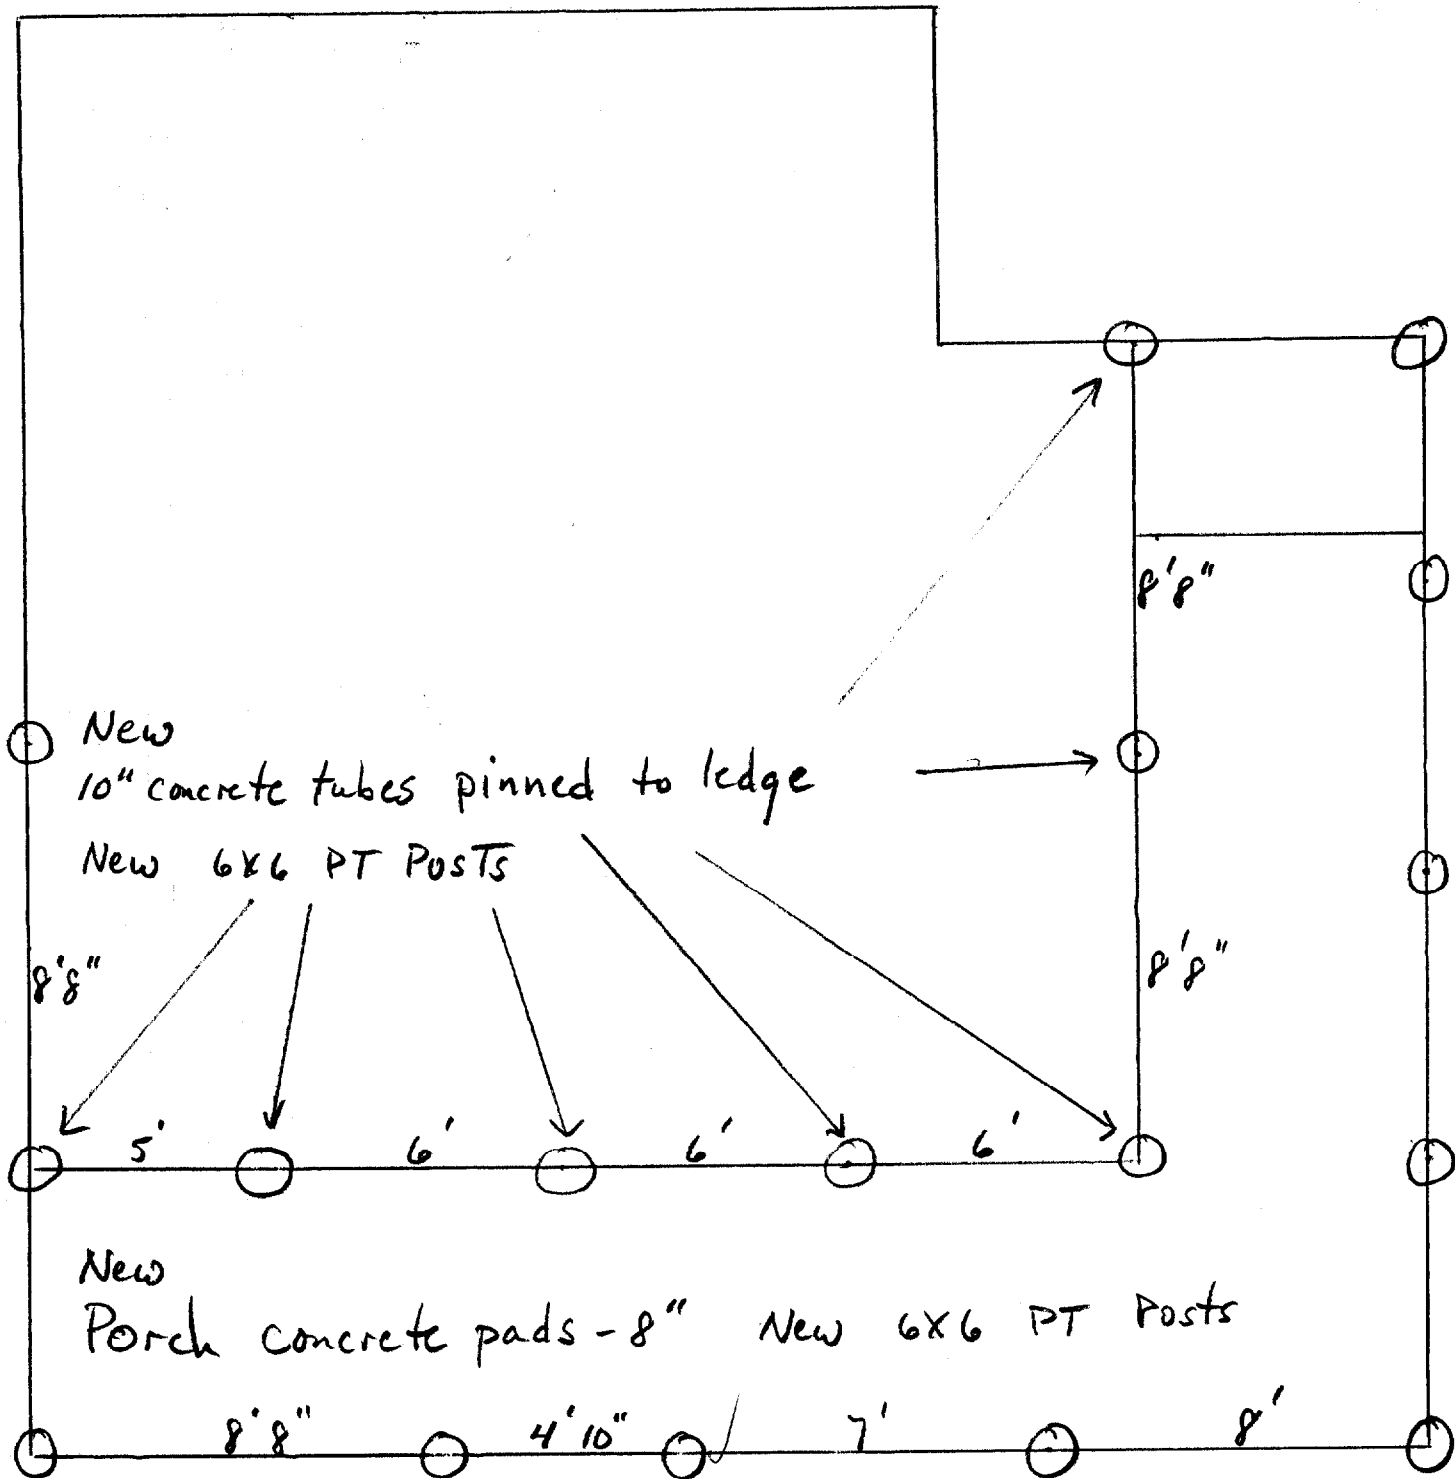 8'8"
New
10" concrete tubes pinned to ledge
New 6x6 PT Posts
8'8"
8'8"
5' 6' 6' 6'
New
Porch concrete pads - 8" New 6x6 PT Posts
8'8" 4'10" 7' 8'